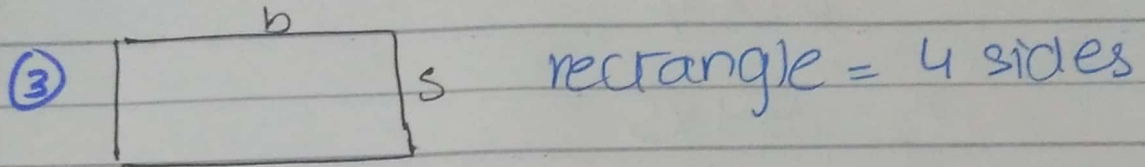 b
③ s rectangle = 4 sides